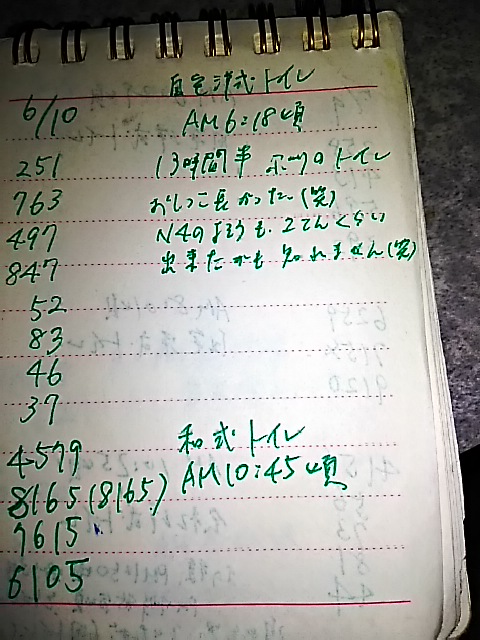 自宅洋式トイレ
6/10 AM6:18頃
251 13時間半 ホツのトイレ
763 おしっこ長かった(笑)
497 N4のようも、2てんくらい
847 出来たかも知れません(笑)
52
83
46
37
和式トイレ
4579
8165(8165) AM10:45頃
7615
6105